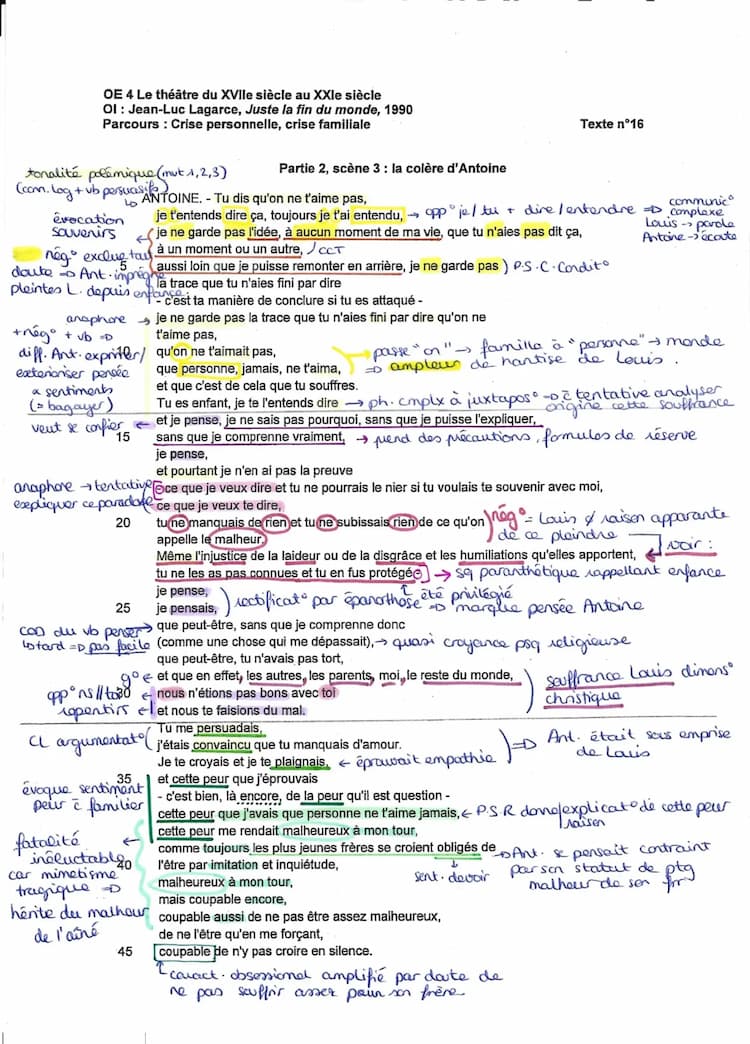 OE 4 Le théâtre du XVIIe siècle au XXIe siècle
OI : Jean-Luc Lagarce, Juste la fin du monde, 1990
Parcours : Crise personnelle, crise familiale
Texte n°16
Partie 2, scène 3 : la colère d'Antoine
tonalité polémique (mvt 1, 2, 3)
(conn. log + vb persuasifs)
ANTOINE. - Tu dis qu'on ne t'aime pas,
je t'entends dire ça, toujours je t'ai entendu,
→ opp° je/tu + dire/entendre ⇒ communic° complexe
Louis → parole
Antoine → écoute
évocation
souvenirs
je ne garde pas l'idée, à aucun moment de ma vie, que tu n'aies pas dit ça,
à un moment ou un autre,
/ CCT
nég° exclue tout
doute ⇒ Ant. imprégné
pleintes L. depuis enfance
5
aussi loin que je puisse remonter en arrière, je ne garde pas
) P.S.C. Condit°
la trace que tu n'aies fini par dire
- c'est ta manière de conclure si tu es attaqué -
anaphore →
je ne garde pas la trace que tu n'aies fini par dire qu'on ne
t'aime pas,
+ nég° + vb ⇒
diff. Ant. exprimer/
extérioriser pensée
& sentiments
(= bagayer)
10
qu'on ne t'aimait pas,
que personne, jamais, ne t'aima,
→ passe "on" → famille à "personne" → monde
⇒ ampleur de hantise de Louis.
et que c'est de cela que tu souffres.
Tu es enfant, je te l'entends dire
→ ph. cmplx à juxtapos° ⇒ tentative analyser
origine cette souffrance
veut se confier ←
et je pense, je ne sais pas pourquoi, sans que je puisse l'expliquer,
15
sans que je comprenne vraiment,
→ prend des précautions, formules de réserve
je pense,
et pourtant je n'en ai pas la preuve
anaphore → tentative
expliquer ce paradoxe
- ce que je veux dire et tu ne pourrais le nier si tu voulais te souvenir avec moi,
ce que je veux te dire,
20
tu ne manquais de rien et tu ne subissais rien de ce qu'on
appelle le malheur.
nég° = Louis Ø raison apparante
de ce pleindre
voir :
Même l'injustice de la laideur ou de la disgrâce et les humiliations qu'elles apportent,
tu ne les as pas connues et tu en fus protégé -
→ sq paranthétique rappellant enfance
privilégié
je pense,
25
je pensais,
) rectificat° par épanorthose ⇒ marque pensée Antoine
COD du vb penser →
↳ tard ⇒ pas facile
que peut-être, sans que je comprenne donc
(comme une chose qui me dépassait),
→ quasi croyance psq religieuse
que peut-être, tu n'avais pas tort,
g° ←
et que en effet, les autres, les parents, moi, le reste du monde,
opp° ns // toi
repentirs ←
30
nous n'étions pas bons avec toi
et nous te faisions du mal.
souffrance Louis dimens°
christique
CL argumentat° (
Tu me persuadais,
j'étais convaincu que tu manquais d'amour.
) ⇒ Ant. était sous emprise
de Louis
Je te croyais et je te plaignais,
← éprouvait empathie
évoque sentiment
peur familier
35
et cette peur que j'éprouvais
- c'est bien, là encore, de la peur qu'il est question -
cette peur que j'avais que personne ne t'aime jamais,
← P.S.R donne explicat° de cette peur
raison
cette peur me rendait malheureux à mon tour,
comme toujours les plus jeunes frères se croient obligés de
sent. devoir
→ Ant. se pensait contraint
par son statut de ptg
malheur de son fr
fatalité
inéluctable
car mimétisme
tragique ⇒
hérite du malheur
de l'aîné
40
l'être par imitation et inquiétude,
malheureux à mon tour,
mais coupable encore,
coupable aussi de ne pas être assez malheureux,
de ne l'être qu'en me forçant,
45
coupable de n'y pas croire en silence.
caract. obsessionel amplifié par doute de
ne pas souffrir assez pour son frère